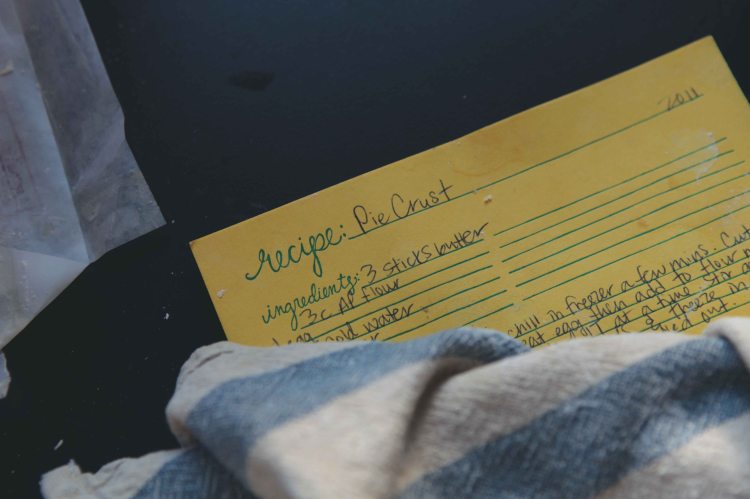 2011
recipe: Pie Crust
ingredients: 3 sticks butter
3 c AP flour
egg
cold water
chill in freezer a few mins. Cut
eat egg then add to flour
at a time. stir
& freeze in
out.